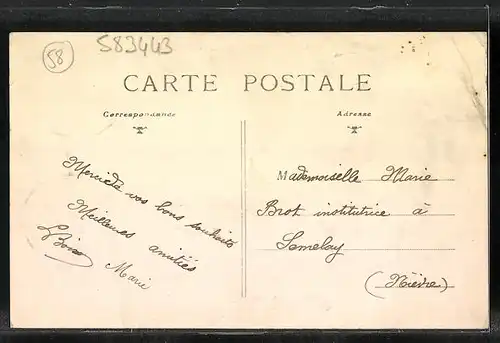 58
583443
CARTE POSTALE
Correspondance
Adresse
Merci de vos bons souhaits
Meilleures amitiés
Marie
Mademoiselle Marie
Brot institutrice à
Semelay
(Nièvre)